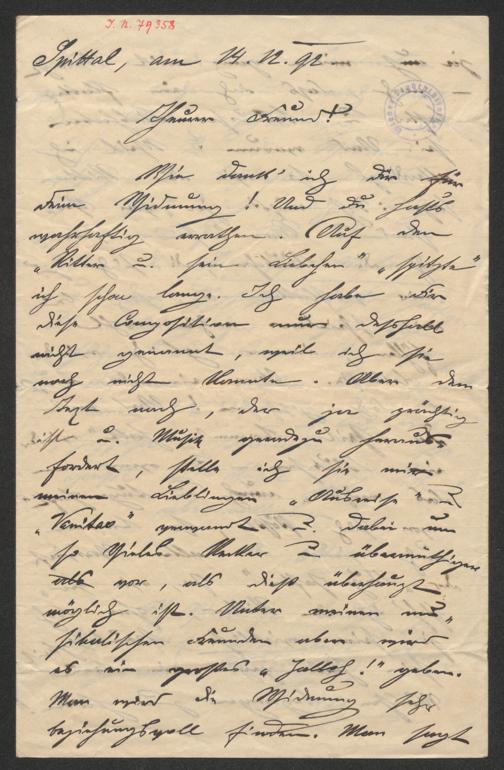 J. N. 79358
Spittal, am 14. 12. 92
Theurer Freund!
Wie dank' ich dir für
deine Widmung! Und du hast's
wahrhaftig errathen. Auf den
„Ritter u. sein Liebchen" „spitzte"
ich schon lange. Ich habe dir
diese Composition nur deshalb
nicht genannt, weil ich sie
noch nicht kannte. Aber dem
Text nach, der ja prächtig
ist u. Musik geradezu heraus-
fordert, stelle ich sie mir
meinen Lieblingen „Ausreise" u.
„Vanitas" verwandt u. dabei um
so Vieles kecker u. übermüthiger
als vor, als dieß überhaupt
möglich ist. Unter meinen mu-
sikalischen Freunden aber wird
es ein großes „Halloh!" geben.
Man wird die Widmung sehr
beziehungsvoll finden. Man sagt